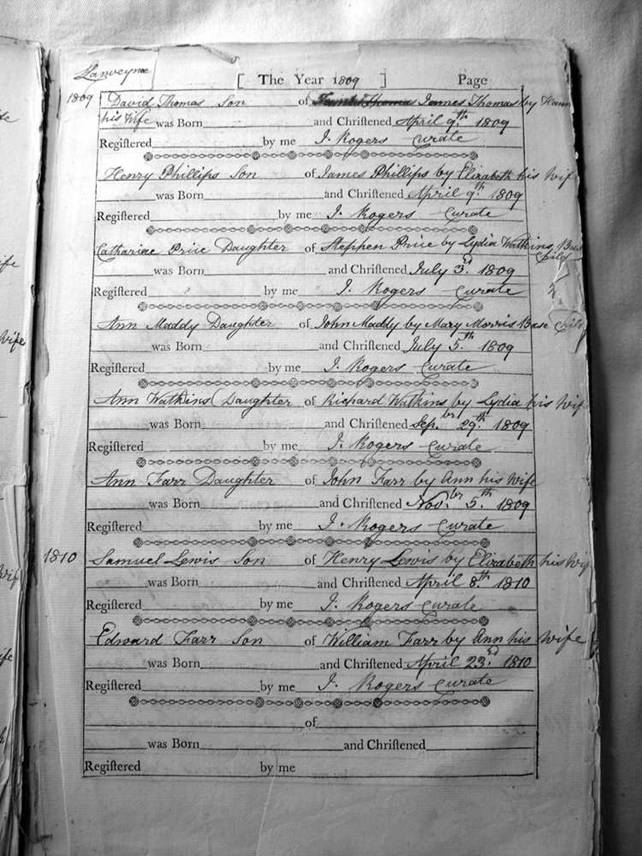 Lanveynoe
[ The Year 1809 ] Page
1809 David Thomas Son of James Thomas by
his Wife was Born and Chriſtened April 9th 1809
Regiſtered by me J. Rogers Curate
Henry Phillips Son of James Phillips by Elizabeth his Wife
was Born and Chriſtened April 9th 1809
Regiſtered by me J. Rogers Curate
Catharine Price Daughter of Stephen Price by Lydia Watkins Base
Child
was Born and Chriſtened July 3d 1809
Regiſtered by me J. Rogers Curate
Ann Maddy Daughter of John Maddy by Mary Morris Base Child
was Born and Chriſtened July 5th 1809
Regiſtered by me J. Rogers Curate
Ann Watkins Daughter of Richard Watkins by Lydia his Wif
was Born and Chriſtened Sep.br 29th 1809
Regiſtered by me J. Rogers Curate
Ann Farr Daughter of John Farr by Ann his Wife
was Born and Chriſtened Nov.br 5th 1809
Regiſtered by me J. Rogers Curate
1810 Samuel Lewis Son of Henry Lewis by Elizabeth his Wif
was Born and Chriſtened April 8th 1810
Regiſtered by me J. Rogers Curate
Edward Farr Son of William Farr by Ann his Wife
was Born and Chriſtened April 23d 1810
Regiſtered by me J. Rogers Curate
of
was Born and Chriſtened
Regiſtered by me